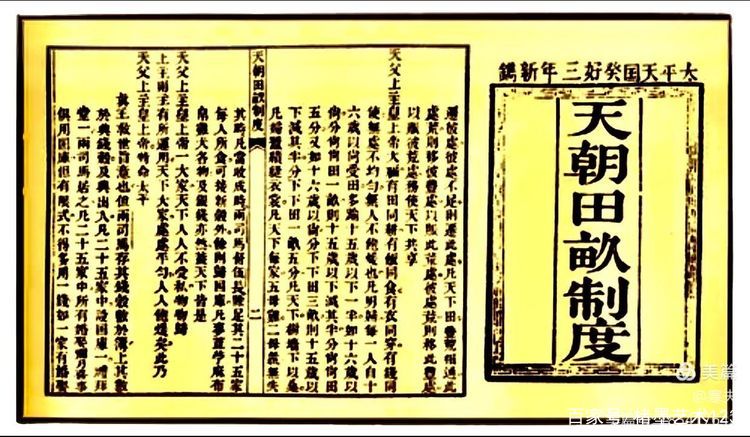 太平天囯癸好三年新鐫
天朝田畝制度
遷彼處彼處不足則遷此處凡天下田豐荒相通此
處荒則移彼豐處以賑此荒處彼處荒則移此豐處
以賑彼荒處務使天下共享
天父上主皇上帝大福有田同耕有飯同食有衣同穿有錢同
使無處不均勻無人不飽煖也凡男婦每一人自十
六歲以尚受田多踰十五歲以下一半如十六歲以
尚分尚尚田一畝則十五歲以下減其半分尚尚田
五分又如十六歲以尚分下下田三畝則十五歲以
下減其半分下下田一畝五分凡天下樹墻下以桑
凡婦蠶績縫衣裳凡天下每家五母雞二母彘無失
天朝田畝制度 二
其時凡當收成時兩司馬督伍長除足其二十五家
每人所食可接新穀外餘則歸國庫凡麥豆苧麻布
帛雞犬各物及銀錢亦然蓋天下皆是
天父上主皇上帝一大家天下人人不受私物物歸
上主則主有所運用天下大家處處平勻人人飽煖矣此乃
天父上主皇上帝特命太平
真主救世旨意也但兩司馬存其錢穀數於簿上其數
於典錢穀及典出入凡二十五家中設國庫一禮拜
堂一兩司馬居之凡二十五家中所有婚娶彌月喜事
俱用國庫但有限式不得多用一錢如一家有婚娶
美篇